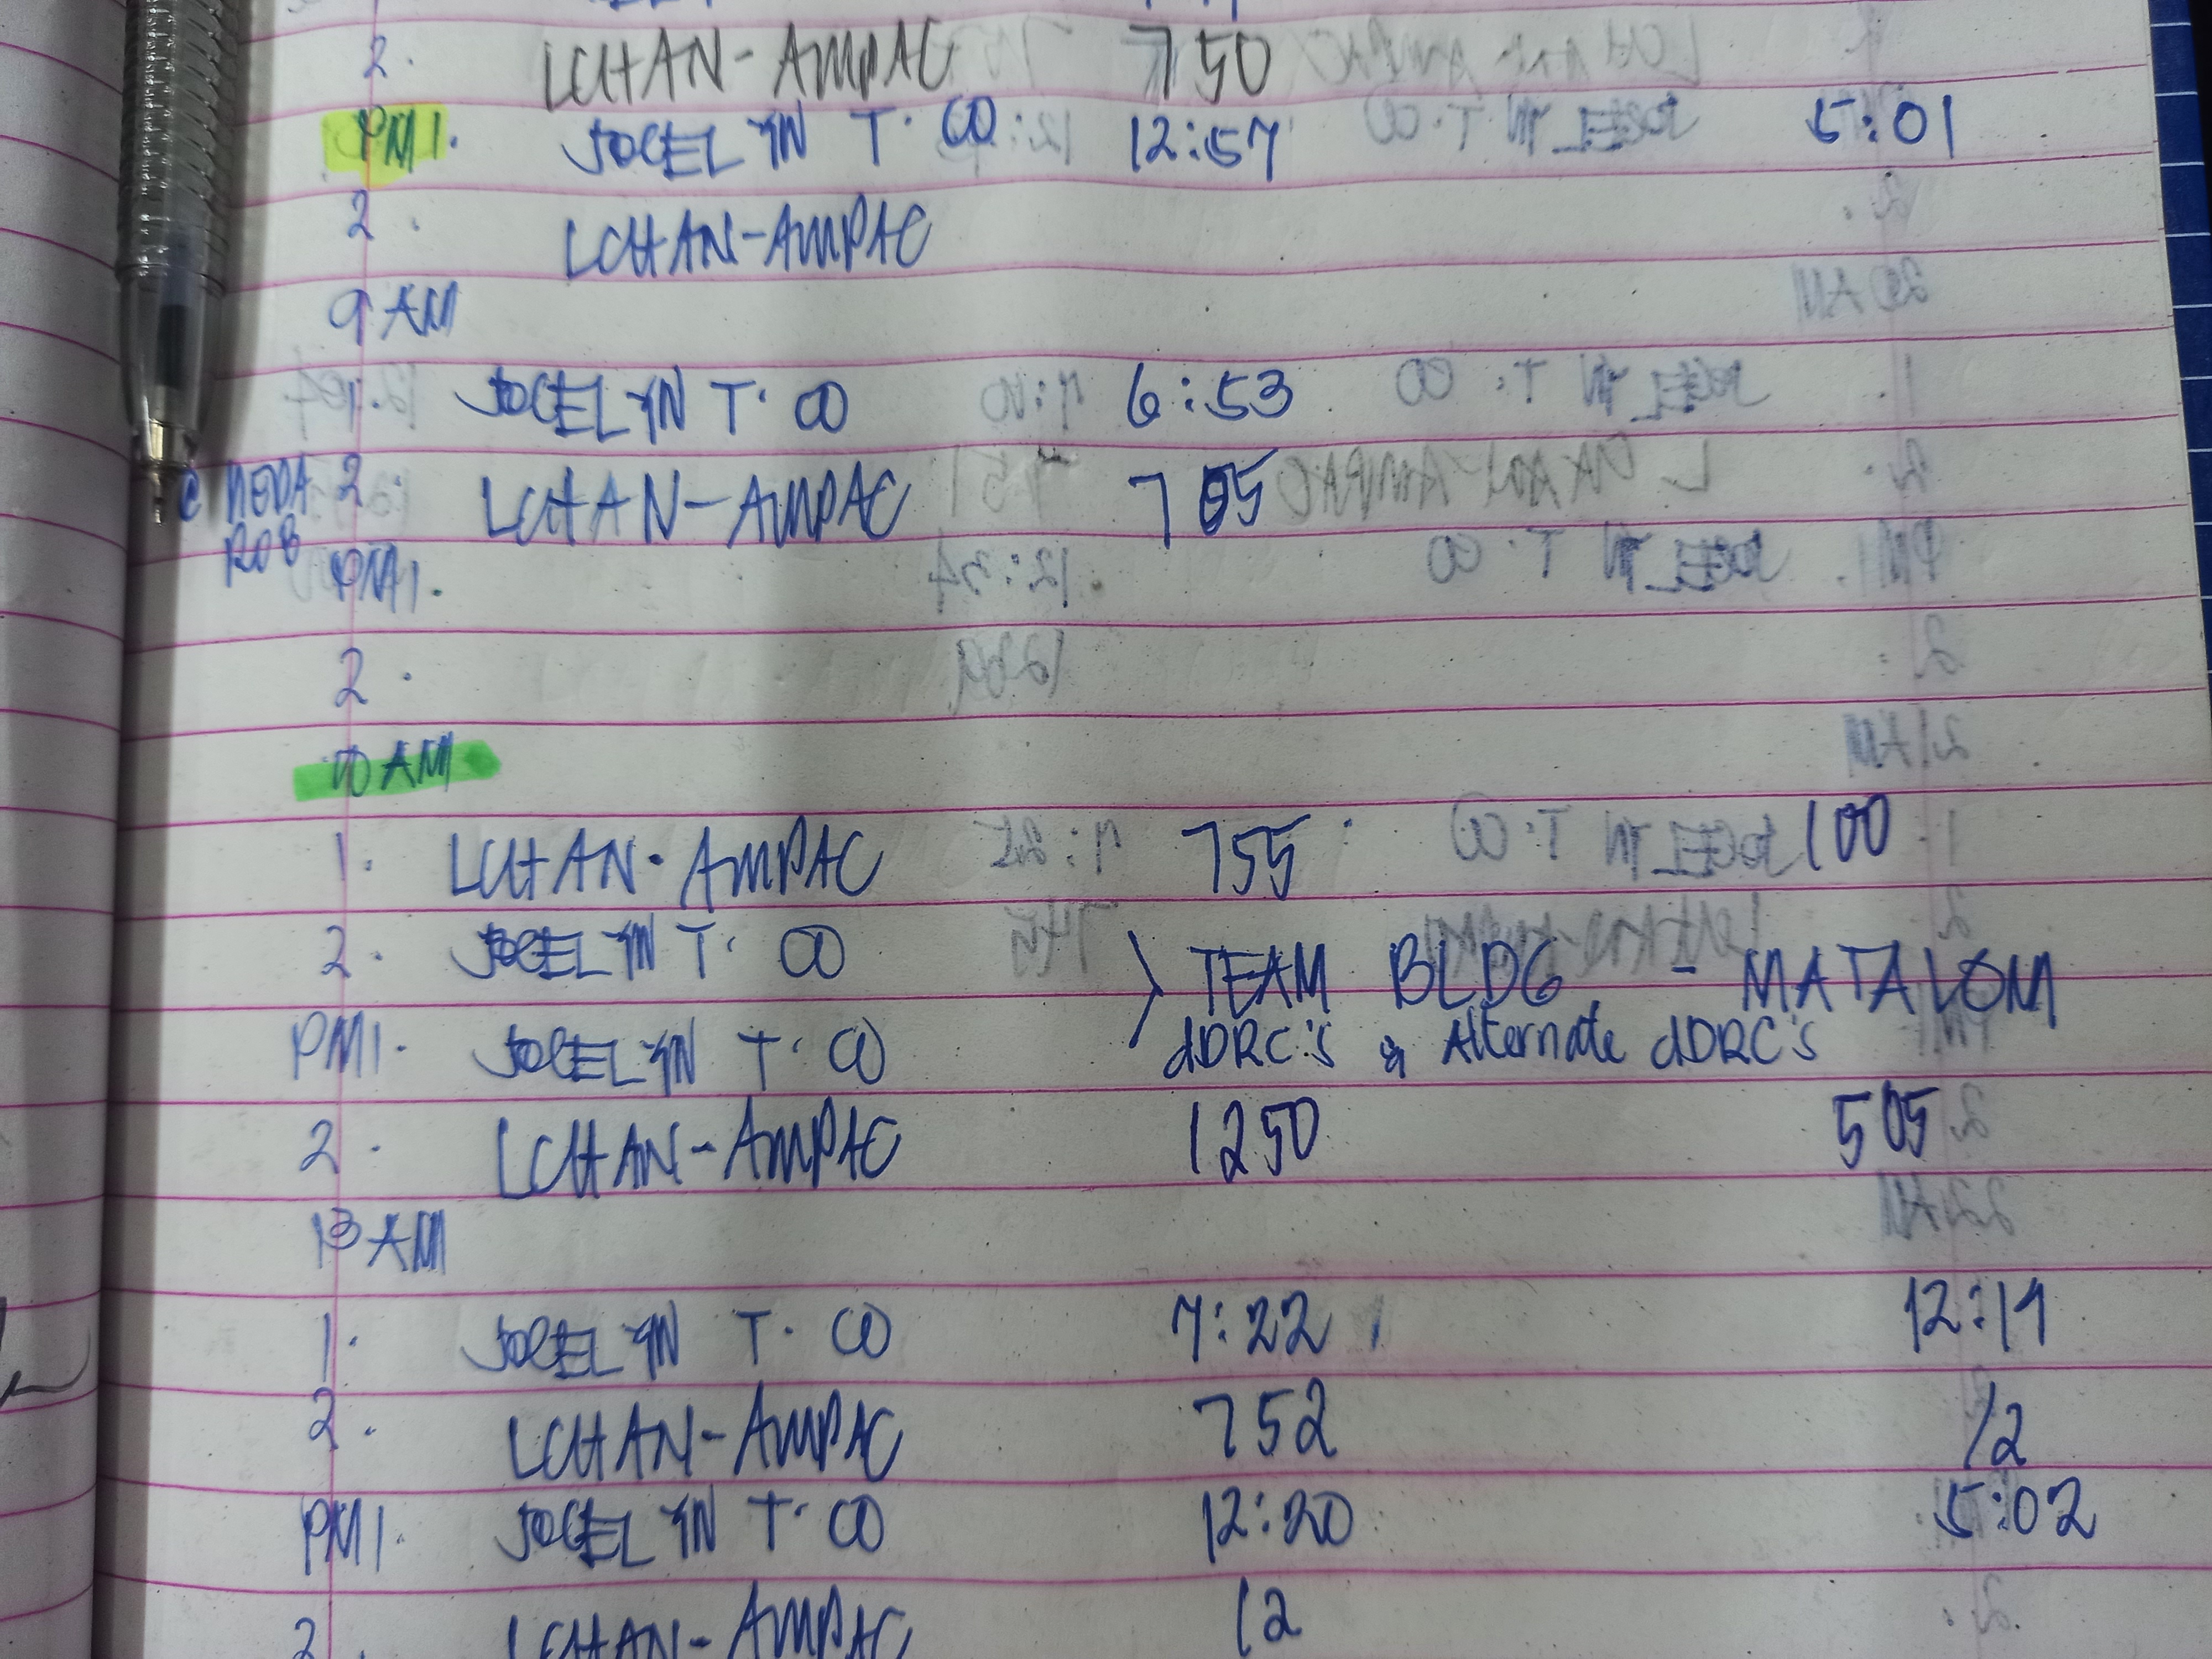 2. LCHAN-AMPAC 750
PM1. JOCELYN T. CO 12:57 5:01
2. LCHAN-AMPAC
9 AM
1. JOCELYN T. CO 6:53
@ NEDA 2. LCHAN-AMPAC 705
RO8
PM1.
2.
10 AM
1. LCHAN-AMPAC 755 100
2. JOCELYN T. CO > TEAM BLDG - MATALOM
PM1. JOCELYN T. CO dDRC's & Alternate dDRC's
2. LCHAN-AMPAC 1250 505
13 AM
1. JOCELYN T. CO 7:22 12:19
2. LCHAN-AMPAC 752 12
PM1. JOCELYN T. CO 12:20 5:02
2. LCHAN-AMPAC 12